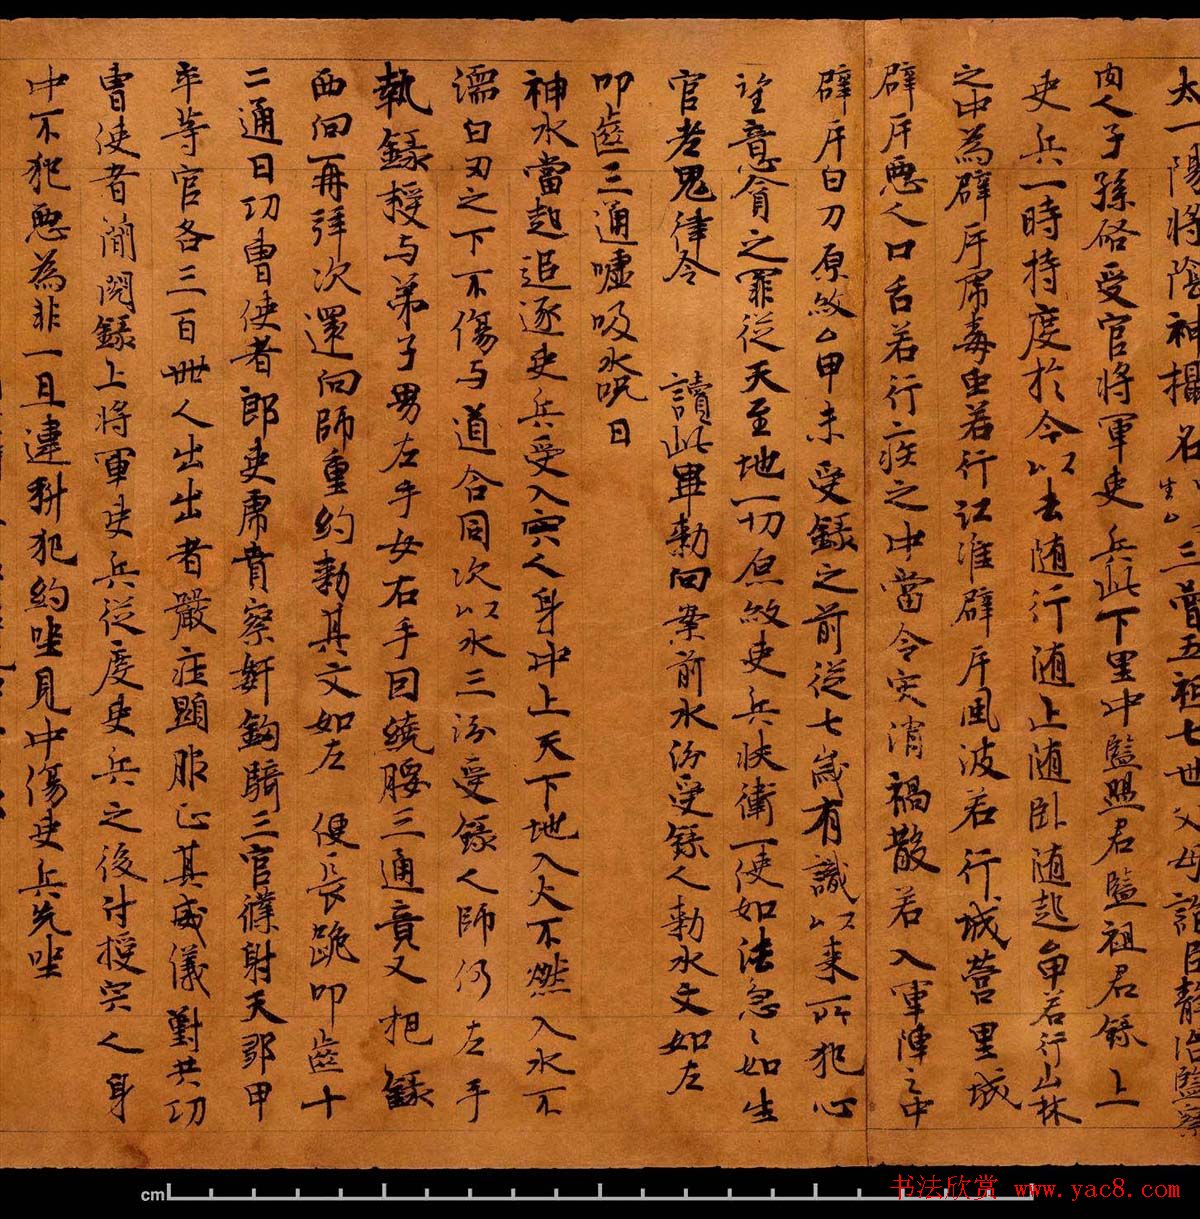 太一陽將陰神攝名生厶三曾五祖七世父母
肉人子孫各受官將軍吏兵此下里中監盟君監祖君籙上
吏兵一時持度於今以去随行随上随卧随起厶甲若行山林
之中為辟斥虎毒虫若行江淮辟斥風波若行城營里域
辟斥惡人口舌若行疫之中當令灾消禍散若入軍陣之中
辟斥白刀原赦厶甲未受籙之前從七歲有識以来所犯心
意貪之罪從天至地一切原赦吏兵侠衛一使如法急之如生
官老鬼律令 讀此畢勑向案前水洒受籙人勑水文如左
叩齒三通噓吸水呪曰
神水當起追逐吏兵受入宍人身中上天下地入火不燃入水不
濡白刃之下不傷与道合同次以水三洒受籙人師仍左手
執籙授与弟子男左手女右手回繞腰三通竟又把籙
西向再拜次還向師重約勑其文如左 便長跪叩齒十
二通曰功曹使者郎吏虎賁察奸鈎騎三官僕射天郢甲
卒等官各三百卌人出出者嚴莊顯服正其威儀對共功
曹使者蕳閱籙上將軍吏兵從度吏兵之後付授宍人身
中不犯惡為非一旦違科犯約坐見中傷吏兵先坐
cm
书法欣赏 www.yac8.com